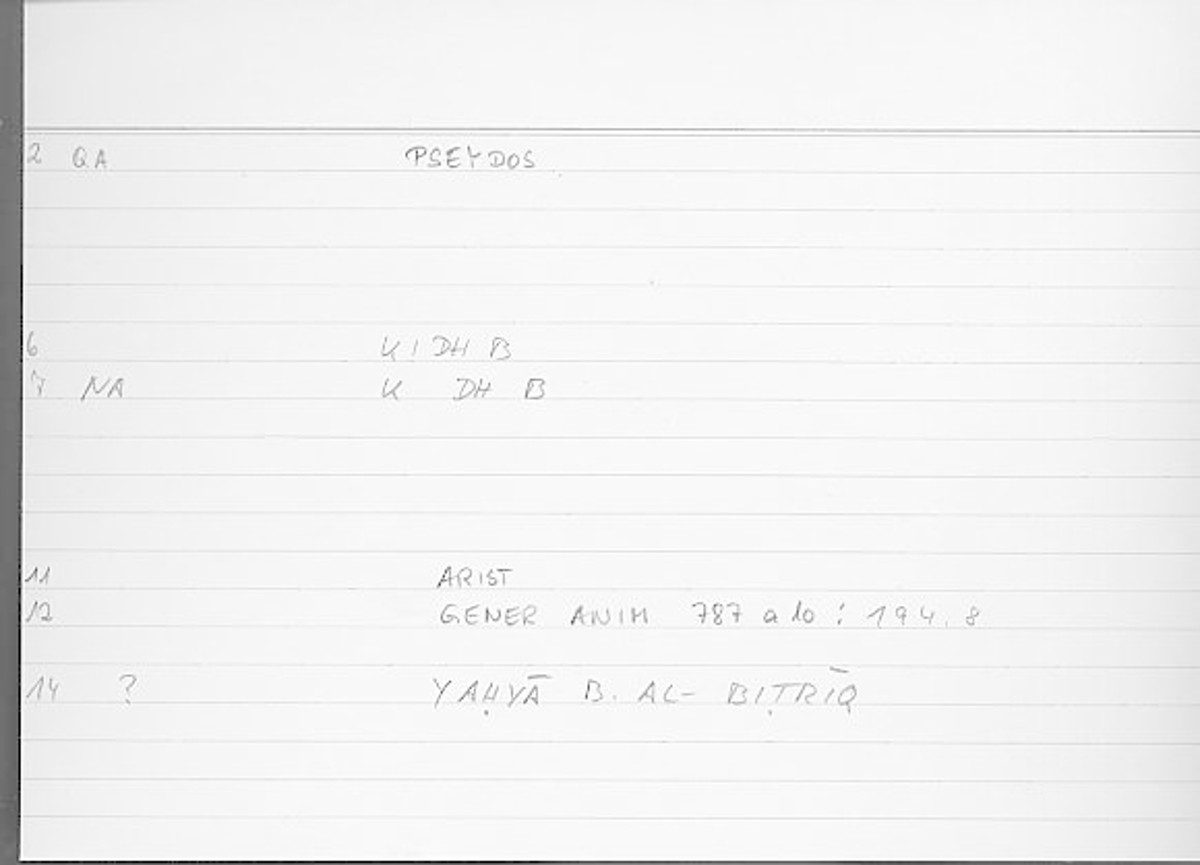 2 QA PSEYDOS
6 KIDH B
7 NA K DH B
11 ARIST
12 GENER ANIM 787 a 10 : 194.8
14 ? YAḤYĀ B. AL- BIṬRĪQ